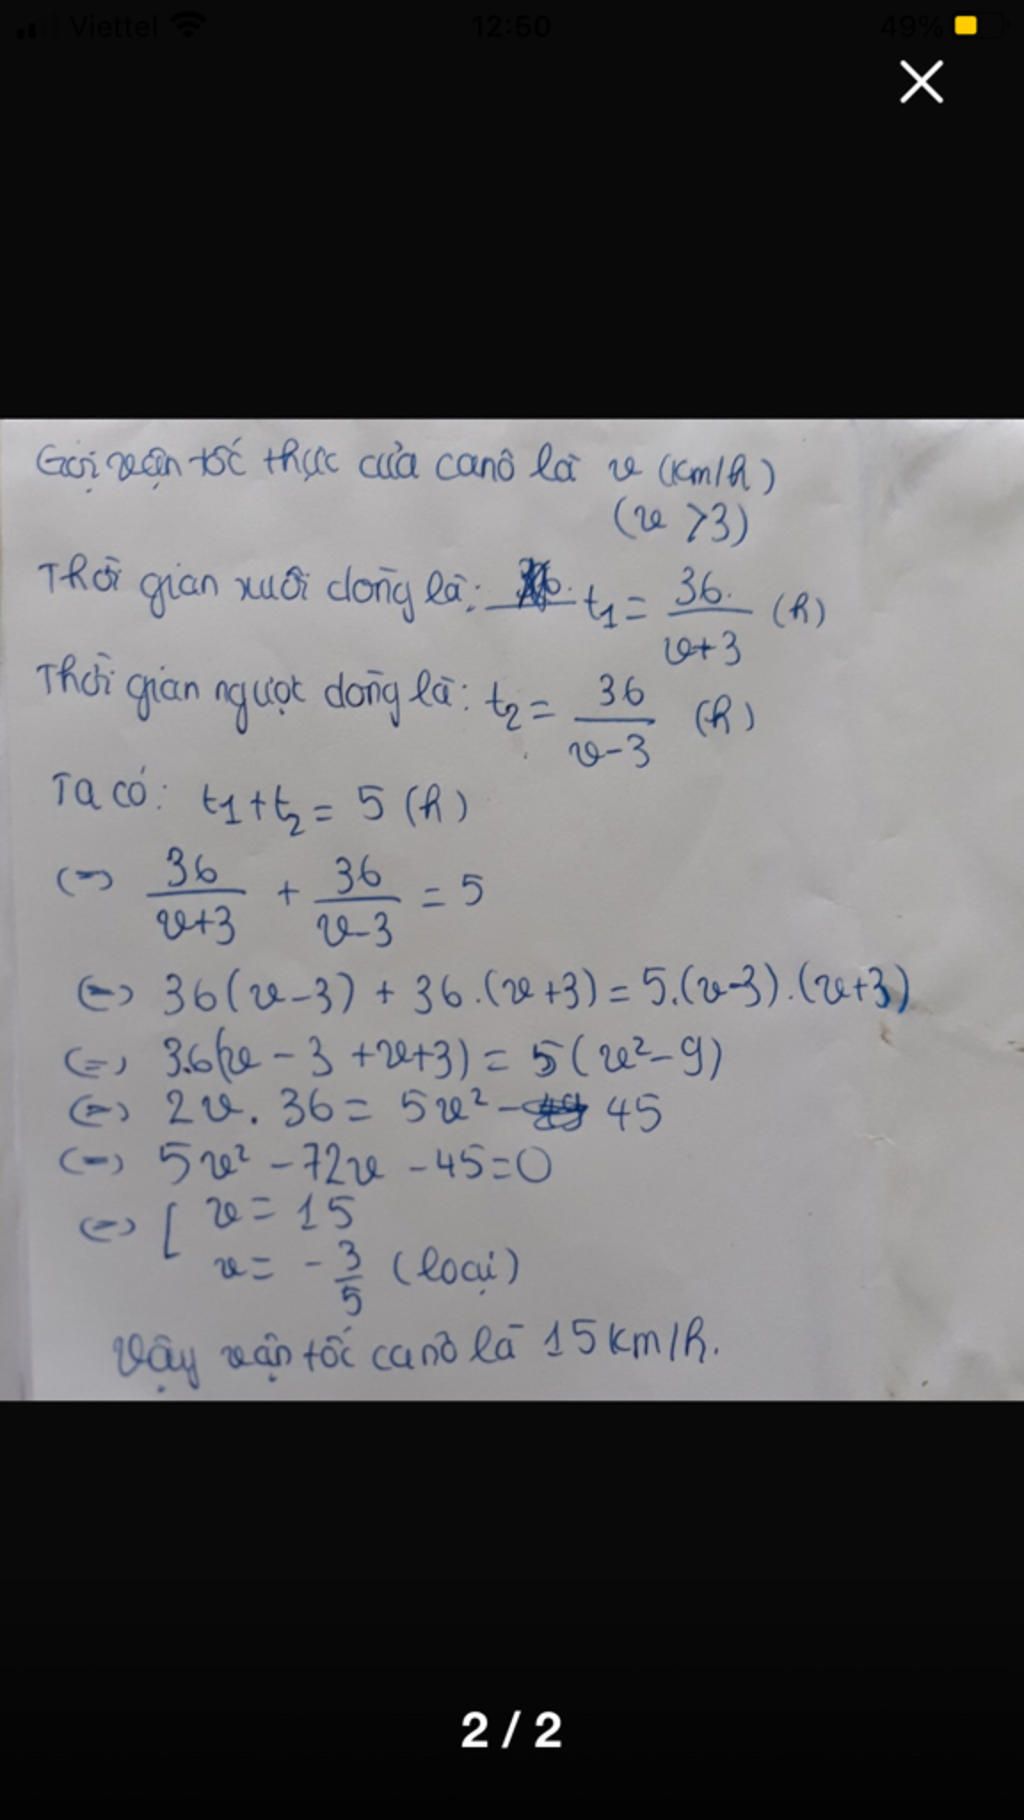 Viettel 12:50 49%
Gọi vận tốc thực của canô là v (km/h)
(v >3)
Thời gian xuôi dòng là: t₁ = 36/(v+3) (h)
Thời gian ngược dòng là: t₂ = 36/(v-3) (h)
Ta có: t₁ + t₂ = 5 (h)
(=) 36/(v+3) + 36/(v-3) = 5
(=) 36(v-3) + 36.(v+3) = 5.(v-3).(v+3)
(=) 36(v - 3 + v+3) = 5(v² - 9)
(=) 2v. 36 = 5v² - 45
(=) 5v² - 72v - 45 = 0
(=) [ v = 15
v = - 3/5 (loại)
Vậy vận tốc canô là 15 km/h.
2 / 2